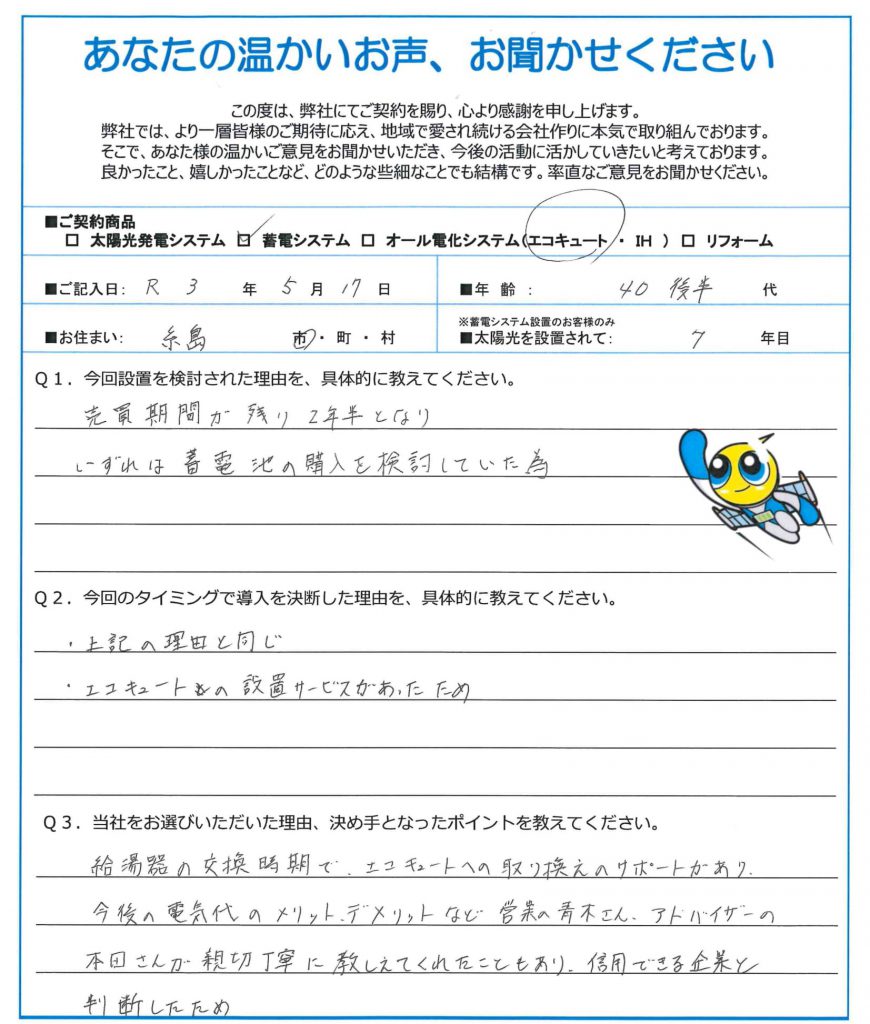 あなたの温かいお声、お聞かせください
この度は、弊社にてご契約を賜り、心より感謝を申し上げます。
弊社では、より一層皆様のご期待に応え、地域で愛され続ける会社作りに本気で取り組んでおります。
そこで、あなた様の温かいご意見をお聞かせいただき、今後の活動に活かしていきたいと考えております。
良かったこと、嬉しかったことなど、どのような些細なことでも結構です。率直なご意見をお聞かせください。
■ご契約商品
□ 太陽光発電システム ☑ 蓄電システム □ オール電化システム(エコキュート ・ IH ) □ リフォーム
■ご記入日: R 3 年 5 月 17 日 ■年 齢 : 40 後半 代
※蓄電システム設置のお客様のみ
■お住まい: 糸島 市・町・村 ■太陽光を設置されて: 7 年目
Q1．今回設置を検討された理由を、具体的に教えてください。
売買期間が残り2年半となり
いずれは蓄電池の購入を検討していた為
Q2．今回のタイミングで導入を決断した理由を、具体的に教えてください。
・上記の理由と同じ
・エコキュートの設置サービスがあったため
Q3．当社をお選びいただいた理由、決め手となったポイントを教えてください。
給湯器の交換時期で、エコキュートへの取り換えのサポートがあり、
今後の電気代のメリット、デメリットなど営業の青木さん、アドバイザーの
本田さんが親切丁寧に教しえてくれたこともあり、信用できる企業と
判断したため